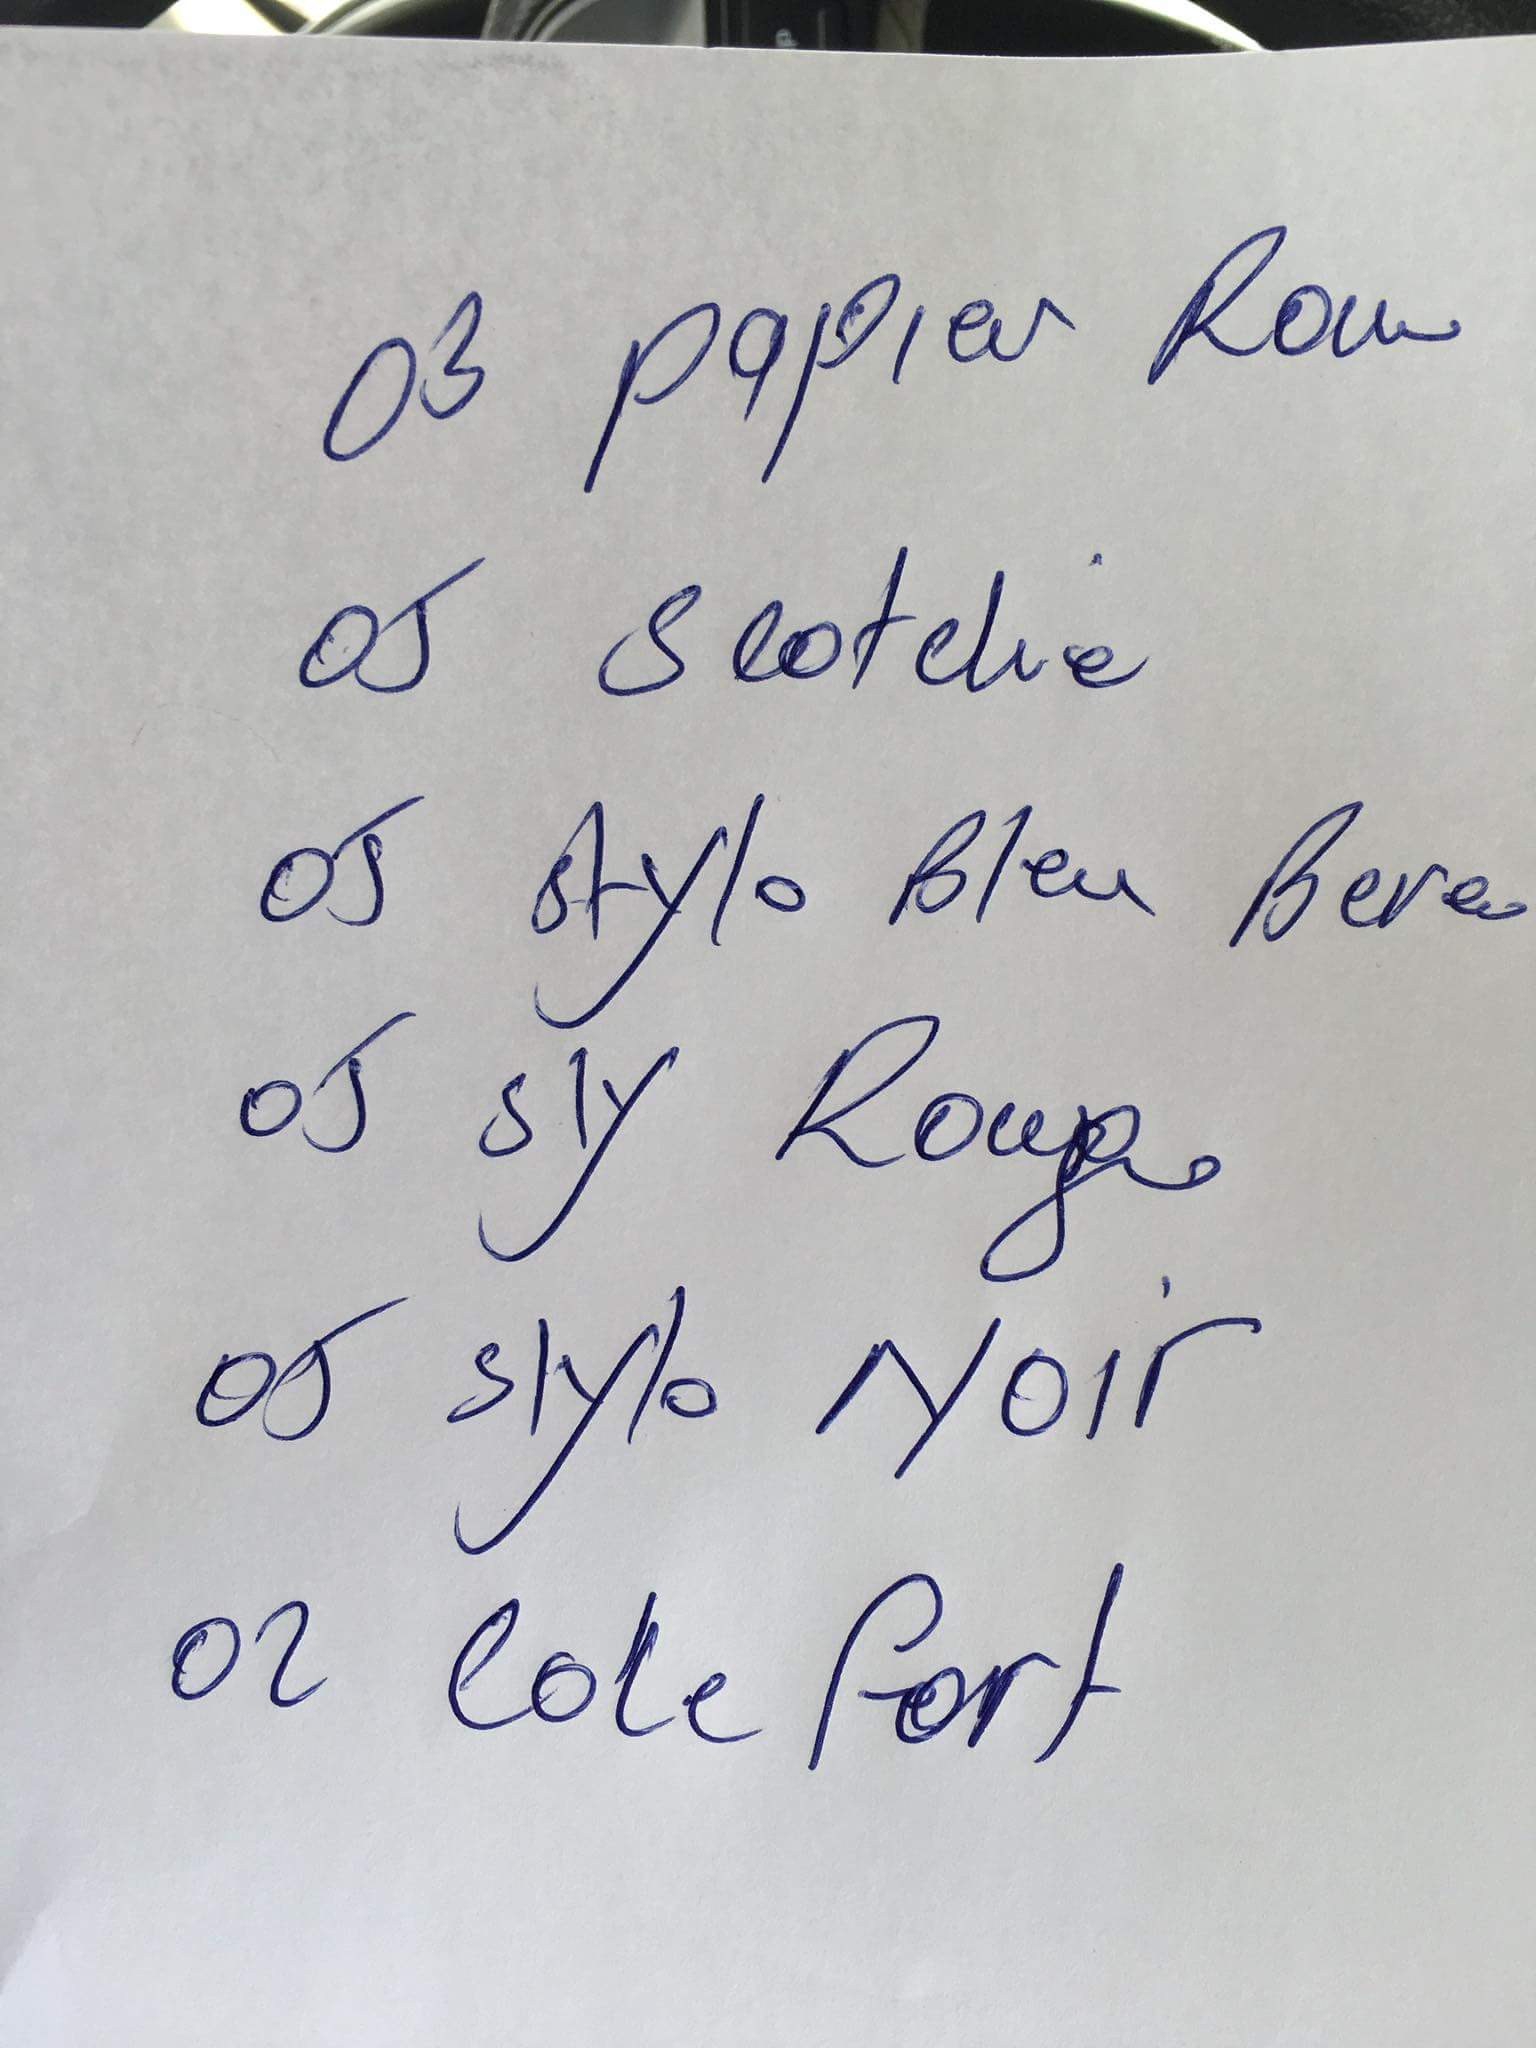 03 papier Ram
05 Scotchie
05 stylo Bleu
05 sty Rouge
05 stylo Noir
02 Cole fort